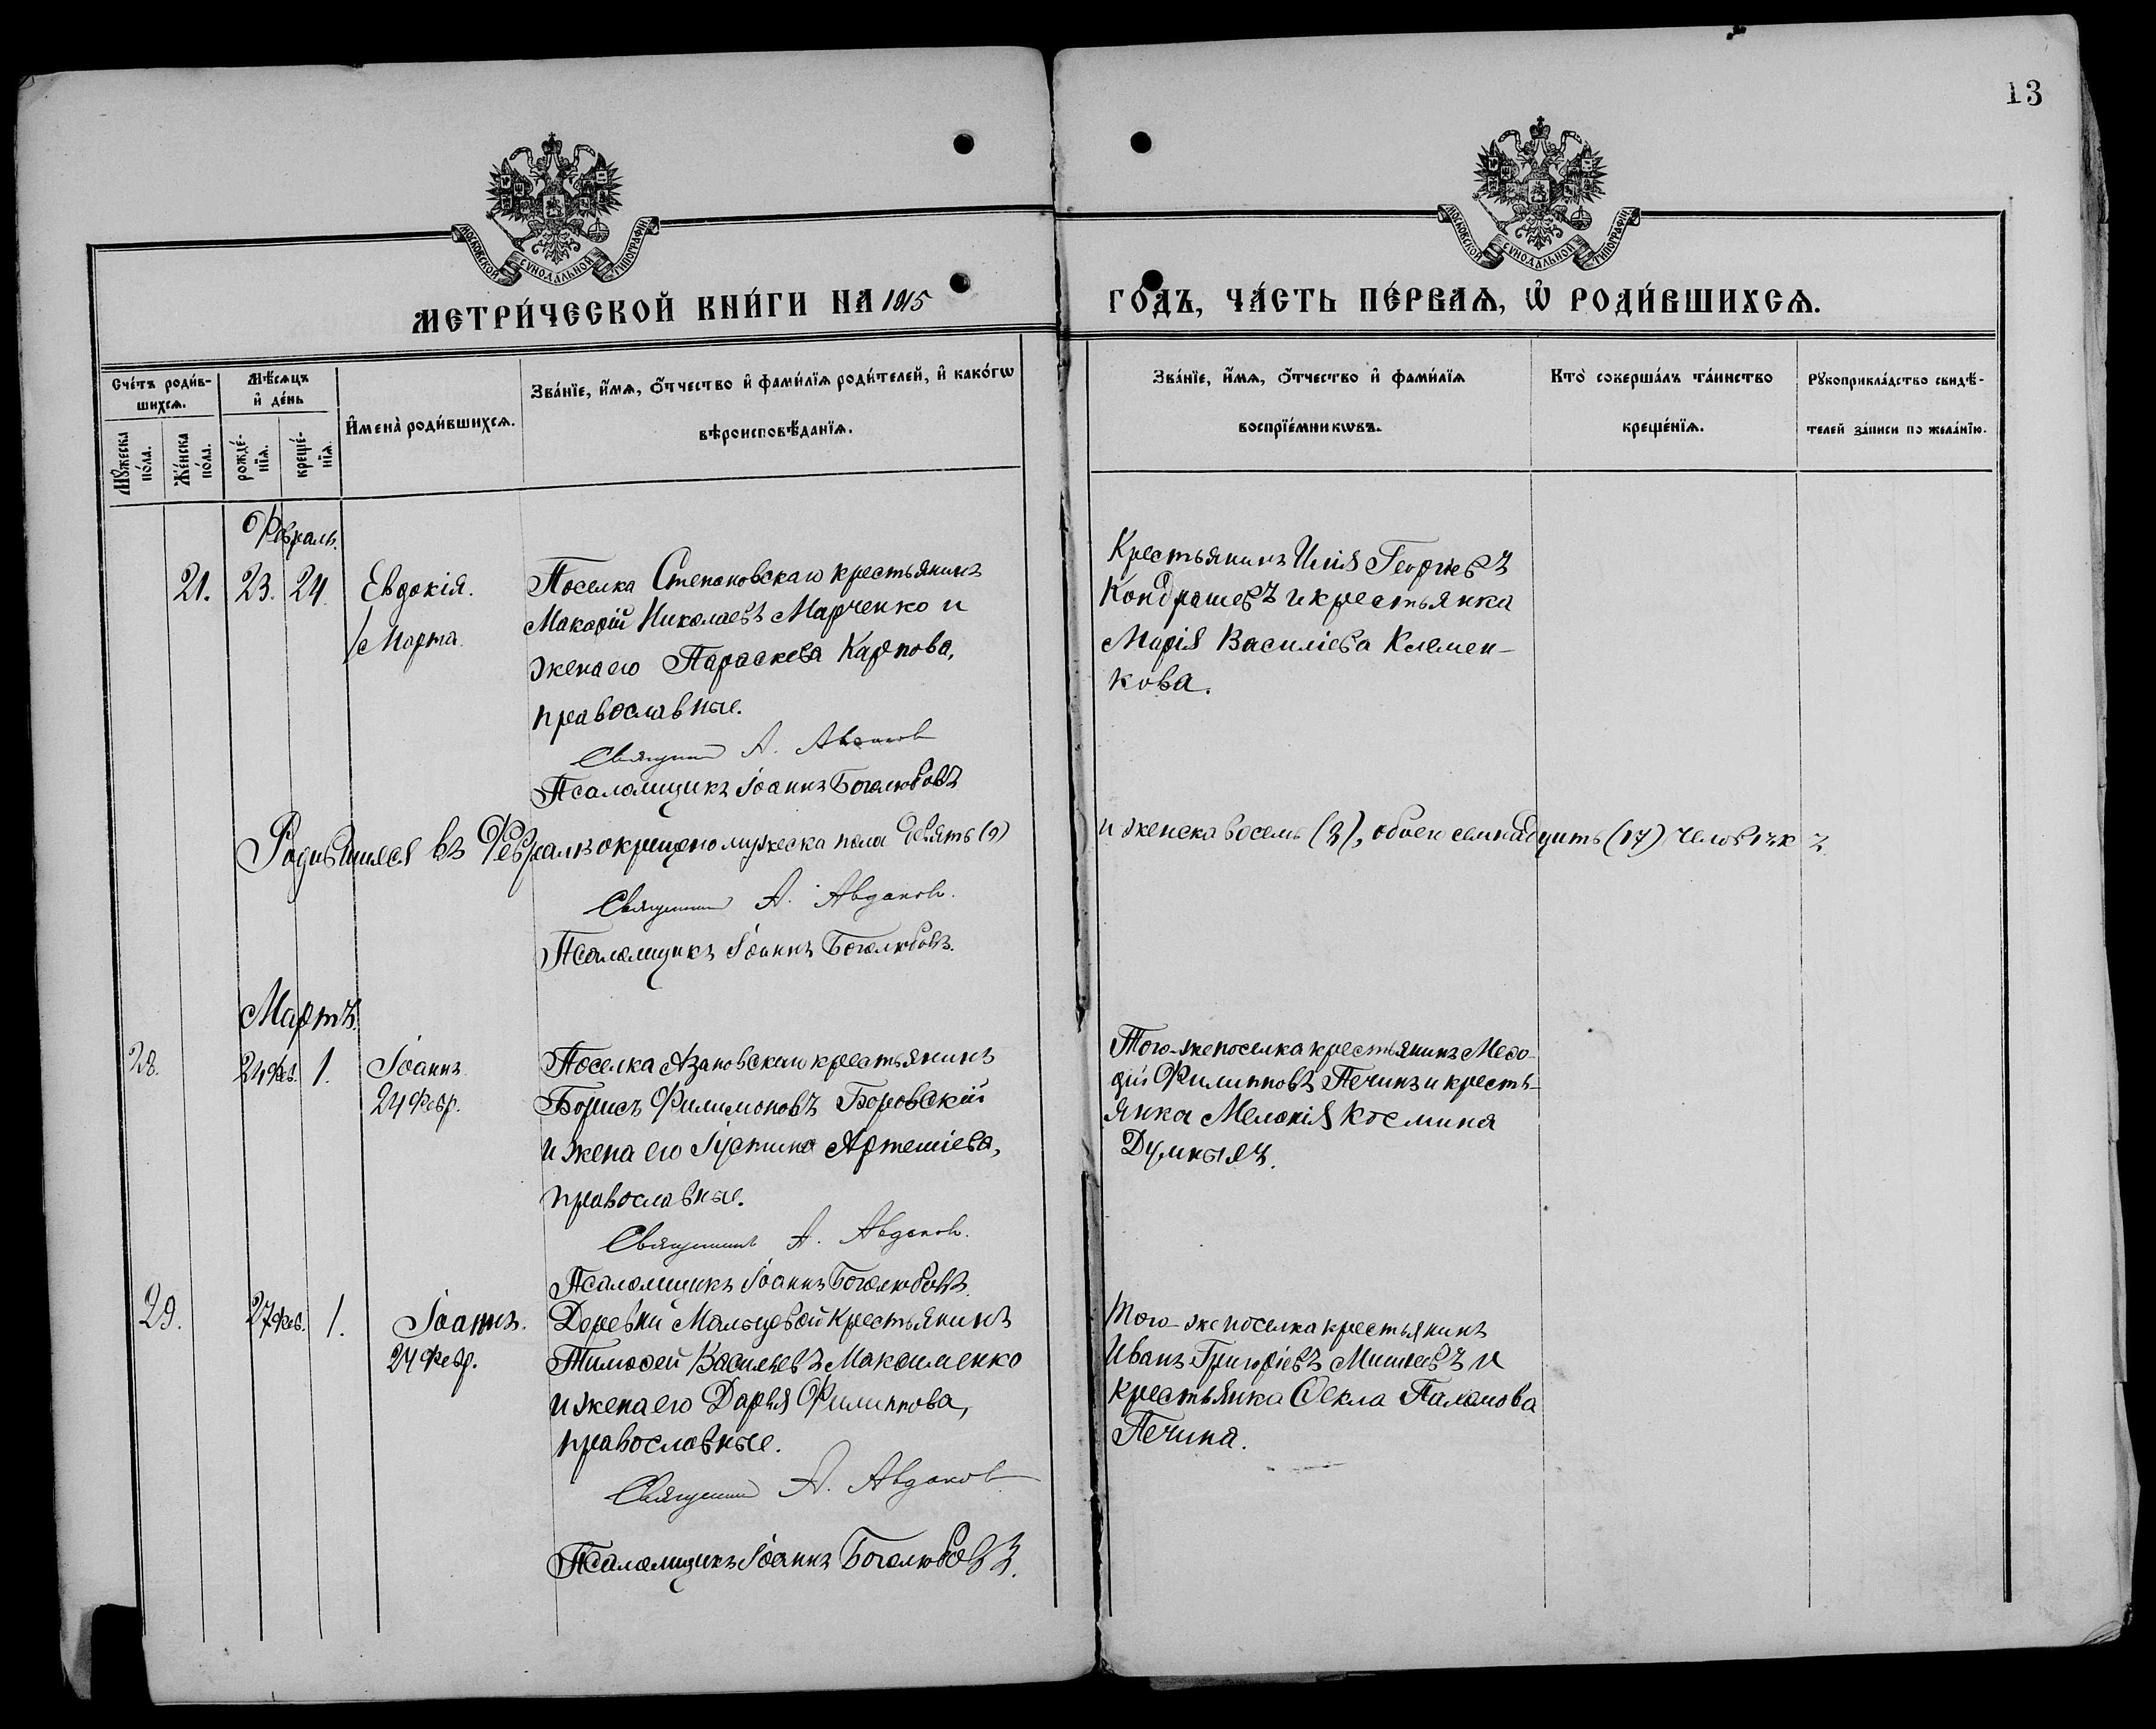 13
МОСКОВСКОЙ СѴНОДАЛЬНОЙ ТИПОГРАФІИ
МОСКОВСКОЙ СѴНОДАЛЬНОЙ ТИПОГРАФІИ
МЕТРИ́ЧЕСКОЙ КНИ́ГИ НА 1915
ГОДЪ, ЧА́СТЬ ПЕ́РВАѦ, Ѡ РОДИ́ВШИХСѦ.
Сче́тъ роди́в-
шихсѧ.
Мѣ́сѧцъ
и де́нь
Имена̀ роди́вшихсѧ.
Зва́нїе, и́мѧ, о́тчество и фами́лїѧ роди́телей, и како́гѡ
вѣроисповѣ́данїѧ.
Мꙋ́жеска по́ла.
Же́нска по́ла.
рожде́-нїѧ.
креще́-нїѧ.
Зва́нїе, и́мѧ, о́тчество и фами́лїѧ
воспрїе́мникѡвъ.
Кто̀ соверша́лъ та́инство
креще́нїѧ.
Рꙋкоприкла́дство свидѣ́-
телей за́писи по жела́нїю.
Февраль.
21. 23. 24. Евдокія.
1 Марта.
Поселка Степановскаго крестьянинъ
Макарій Николаевъ Марченко и
жена его Параскева Карпова,
православные.
Священникъ А. Авдаков
Псаломщикъ Іоаннъ Боголюбовъ
Крестьянинъ Илія Георгіевъ
Кондрашевъ и крестьянка
Марія Василіева Клемен-
кова.
Родившихся въ Февралѣ окрещено мужеска пола девять (9)
и женска восемь (8), обоего семнадцать (17) человѣкъ
Священникъ А. Авдаков.
Псаломщикъ Іоаннъ Боголюбовъ.
Мартъ.
28. 24 Фев. 1. Іоаннъ.
24 Февр.
Поселка Азановскаго крестьянинъ
Борисъ Филимоновъ Боровскій
и жена его Іустина Артеміева,
православные.
Священникъ А. Авдаков.
Псаломщикъ Іоаннъ Боголюбовъ.
Того-же поселка крестьянинъ Меѳо-
дій Филипповъ Печинъ и кресть-
янка Меланія Космина
29. 27 Фев. 1. Іоаннъ.
24 Февр.
Деревни Мальцевой крестьянинъ
Тимоѳей Васильевъ Максименко
и жена его Дарья Филиппова,
православные.
Священникъ А. Авдаков
Псаломщикъ Іоаннъ Боголюбовъ.
Того-же поселка крестьянинъ
Иванъ Григоріевъ и
крестьянка Ѳекла
Печина.